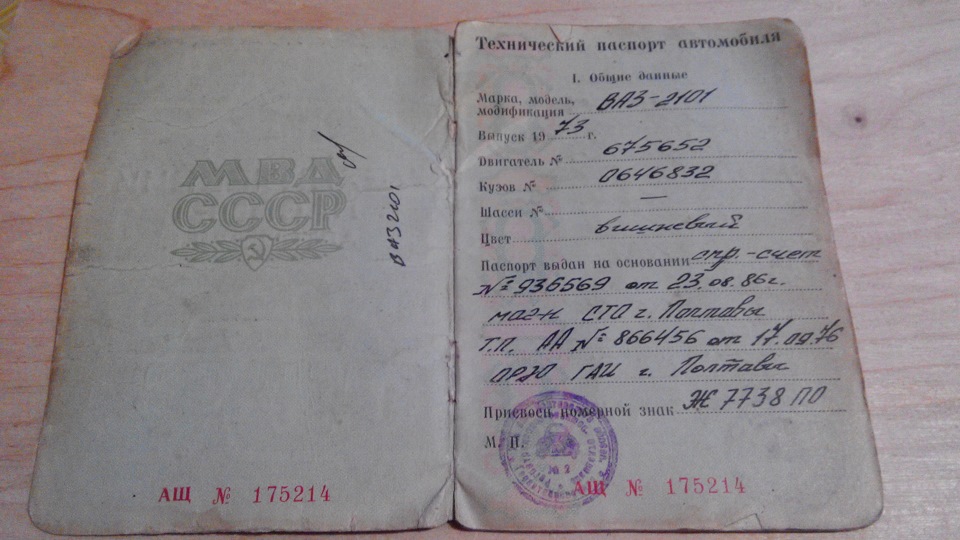 МВД
СССР
ВАЗ 2101
АЩ № 175214
Технический паспорт автомобиля
I. Общие данные
Марка, модель,
модификация ВАЗ-2101
Выпуск 1973 г.
Двигатель № 675652
Кузов № 0646832
Шасси № —
Цвет вишневый
Паспорт выдан на основании спр.-счет
№ 936569 от 23.08.86г.
маг-н СТО г. Полтавы
Т.П. АА № 866456 от 17.09.76
ОРЭО ГАИ г. Полтавы
Присвоен номерной знак Ж 7738 ПО
М. П.
№ 2
АЩ № 175214